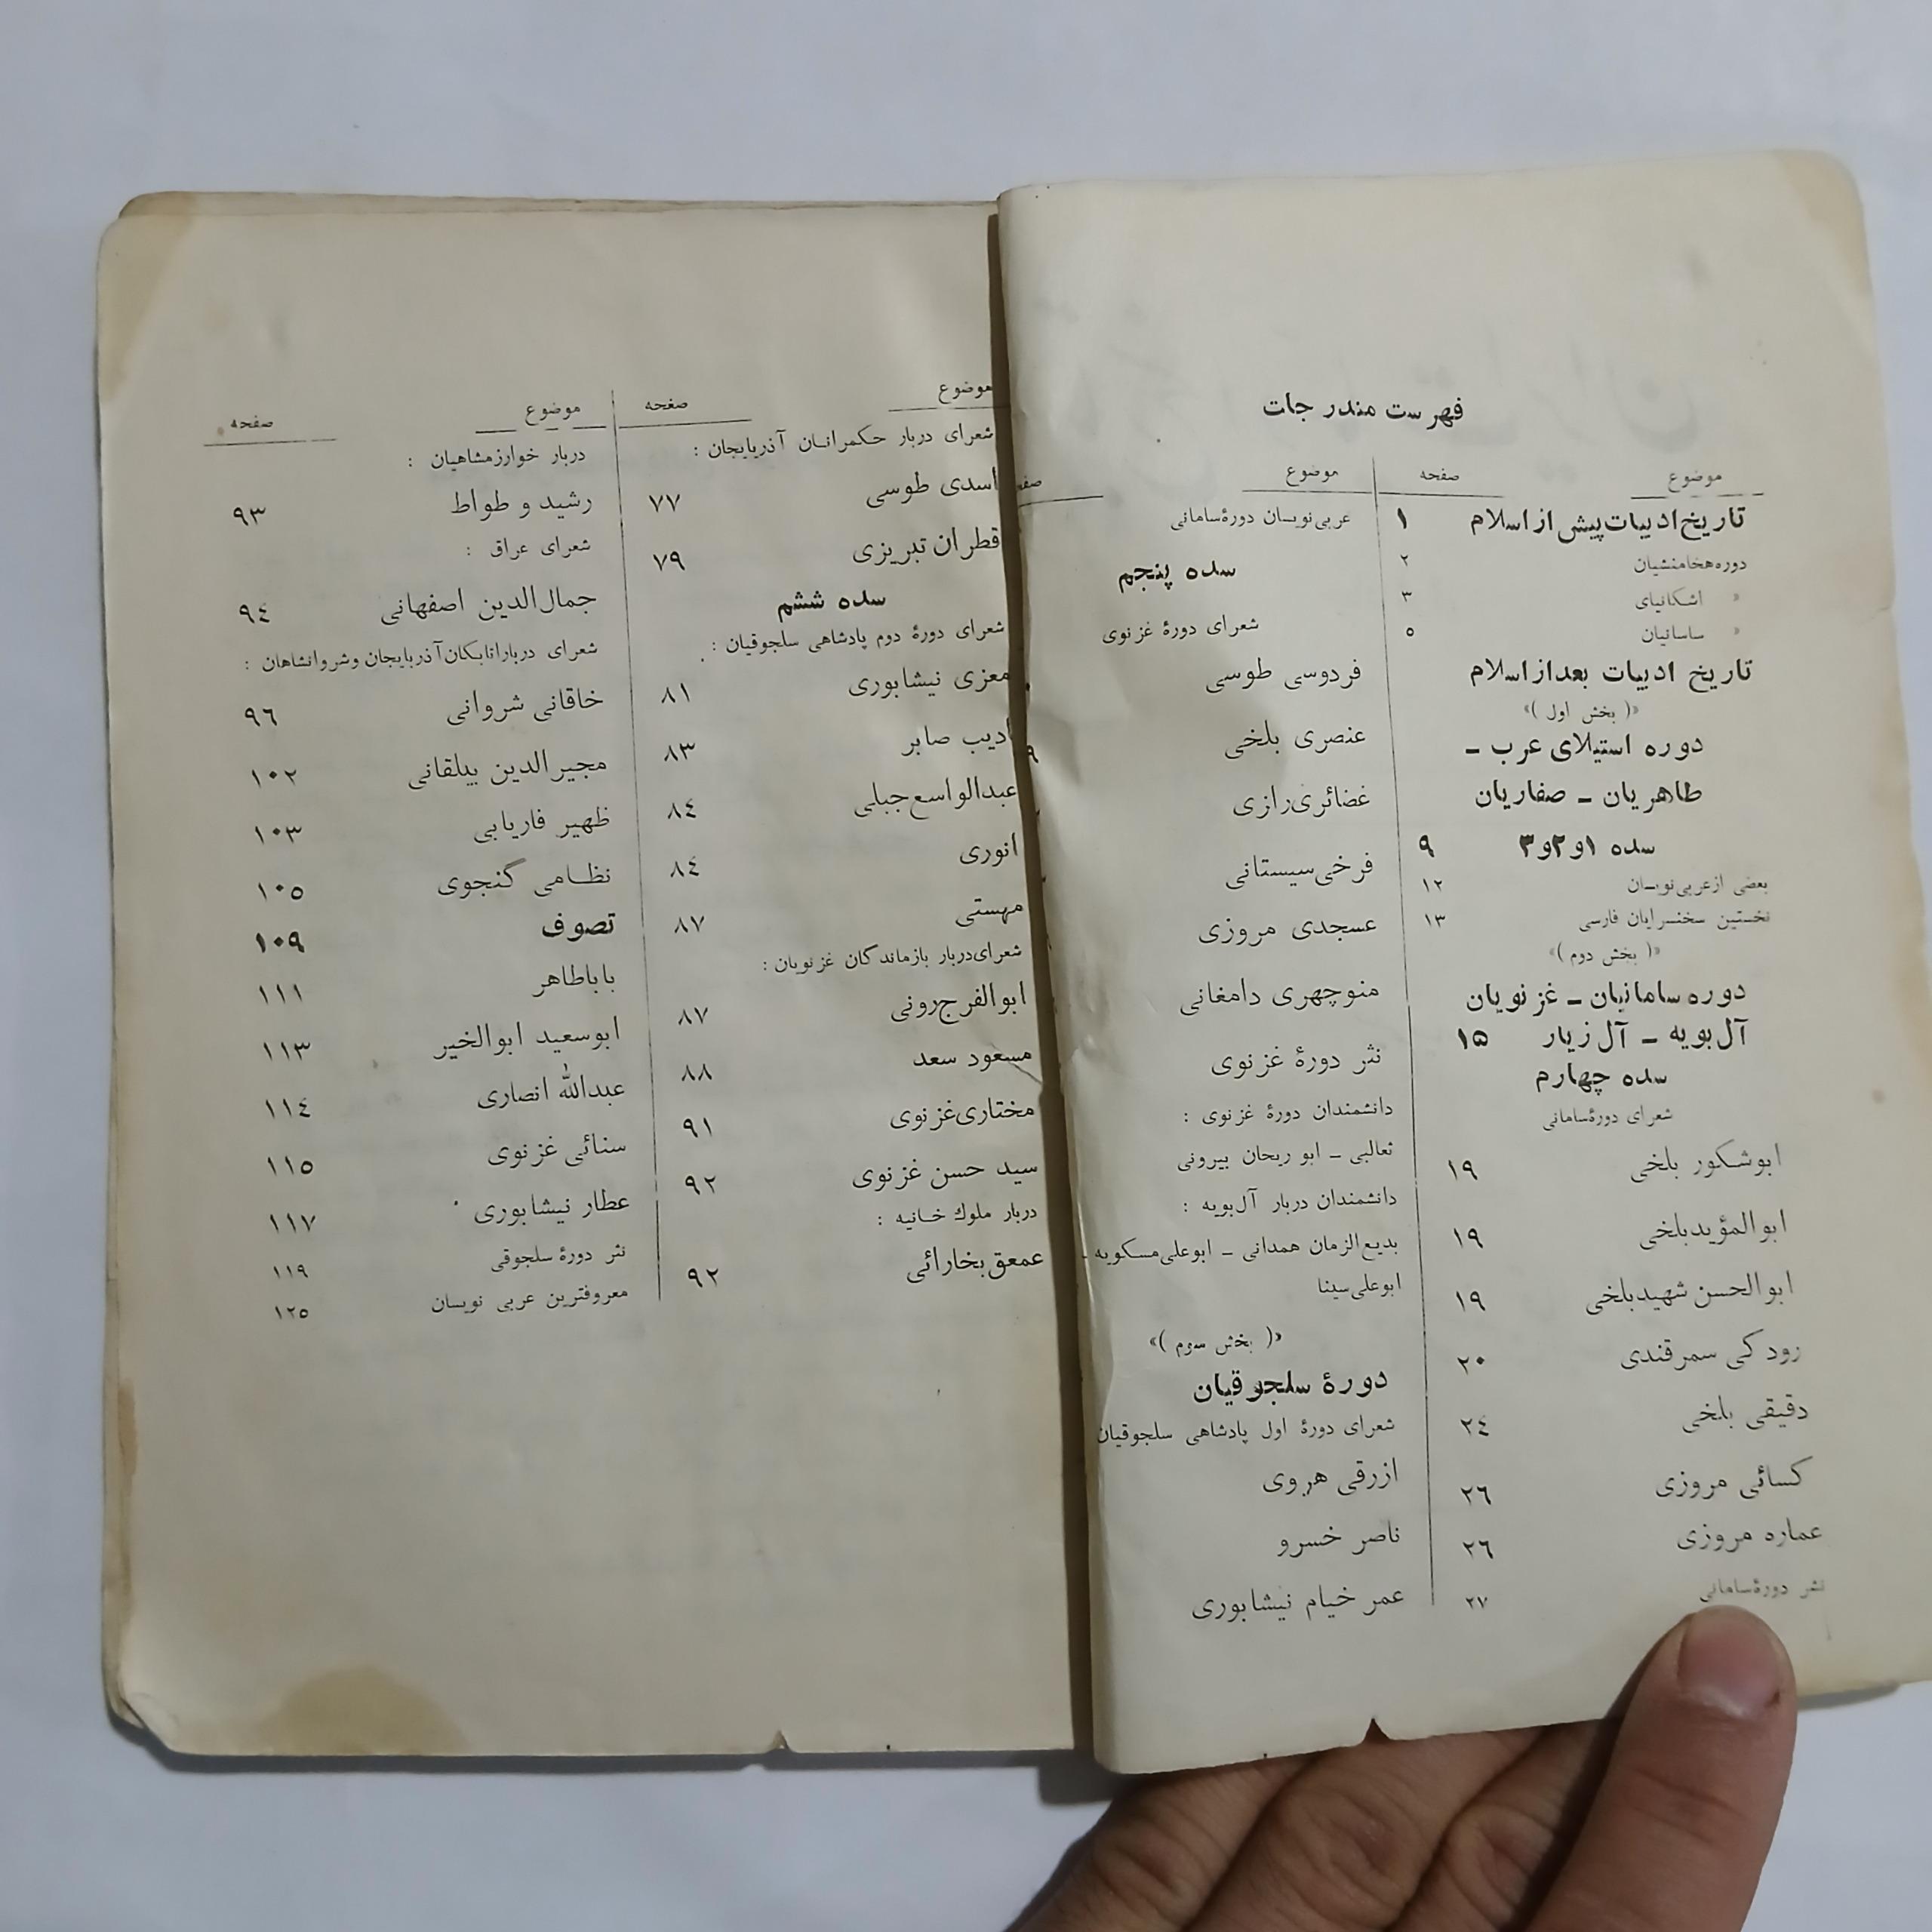 فهرست مندرجات
موضوع صفحه
تاریخ ادبیات پیش از اسلام ۱
دوره هخامنشیان ۲
« اشکانیای ۳
« ساسانیان ۵
تاریخ ادبیات بعد از اسلام
«( بخش اول )»
دوره استیلای عرب -
طاهریان - صفاریان
سده ۱و۲و۳ ۹
بعضی از عربی‌نویسان ۱۲
نخستین سخنسرایان فارسی ۱۳
«( بخش دوم )»
دوره سامانیان - غزنویان
آل‌بویه - آل زیار ۱۵
سده چهارم
شعرای دورهٔ سامانی
ابوشکور بلخی ۱۹
ابوالمؤید بلخی ۱۹
ابوالحسن شهید بلخی ۱۹
رودکی سمرقندی ۲۰
دقیقی بلخی ۲٤
کسائی مروزی ۲٦
عماره مروزی ۲٦
نثر دورهٔ سامانی ۲۷
موضوع
عربی‌نویسان دورهٔ سامانی
سده پنجم
شعرای دورهٔ غزنوی
فردوسی طوسی
عنصری بلخی
غضائری رازی
فرخی سیستانی
عسجدی مروزی
منوچهری دامغانی
نثر دورهٔ غزنوی
دانشمندان دورهٔ غزنوی :
ثعالبی - ابو ریحان بیرونی
دانشمندان دربار آل‌بویه :
بدیع‌الزمان همدانی - ابوعلی مسکویه -
ابوعلی سینا
«( بخش سوم )»
دورهٔ سلجوقیان
شعرای دورهٔ اول پادشاهی سلجوقیان
ازرقی هروی
ناصر خسرو
عمر خیام نیشابوری
موضوع صفحه
شعرای دربار حکمرانان آذربایجان :
اسدی طوسی ۷۷
قطران تبریزی ۷۹
سده ششم
شعرای دورهٔ دوم پادشاهی سلجوقیان :
معزی نیشابوری ۸۱
ادیب صابر ۸۳
عبدالواسع جبلی ۸٤
انوری ۸٤
مهستی ۸۷
شعرای دربار بازماندگان غزنویان :
ابوالفرج رونی ۸۷
مسعود سعد ۸۸
مختاری غزنوی ۹۱
سید حسن غزنوی ۹۲
دربار ملوك خانیه :
عمعق بخارائی ۹۲
موضوع صفحه
دربار خوارزمشاهیان :
رشید و طواط ۹۳
شعرای عراق :
جمال‌الدین اصفهانی ۹٤
شعرای دربار اتابکان آذربایجان و شروانشاهان :
خاقانی شروانی ۹٦
مجیرالدین بیلقانی ۱۰۲
ظهیر فاریابی ۱۰۳
نظامی گنجوی ۱۰۵
تصوف ۱۰۹
باباطاهر ۱۱۱
ابوسعید ابوالخیر ۱۱۳
عبدالله انصاری ۱۱٤
سنائی غزنوی ۱۱۵
عطار نیشابوری ۱۱۷
نثر دورهٔ سلجوقی ۱۱۹
معروفترین عربی نویسان ۱۲۵